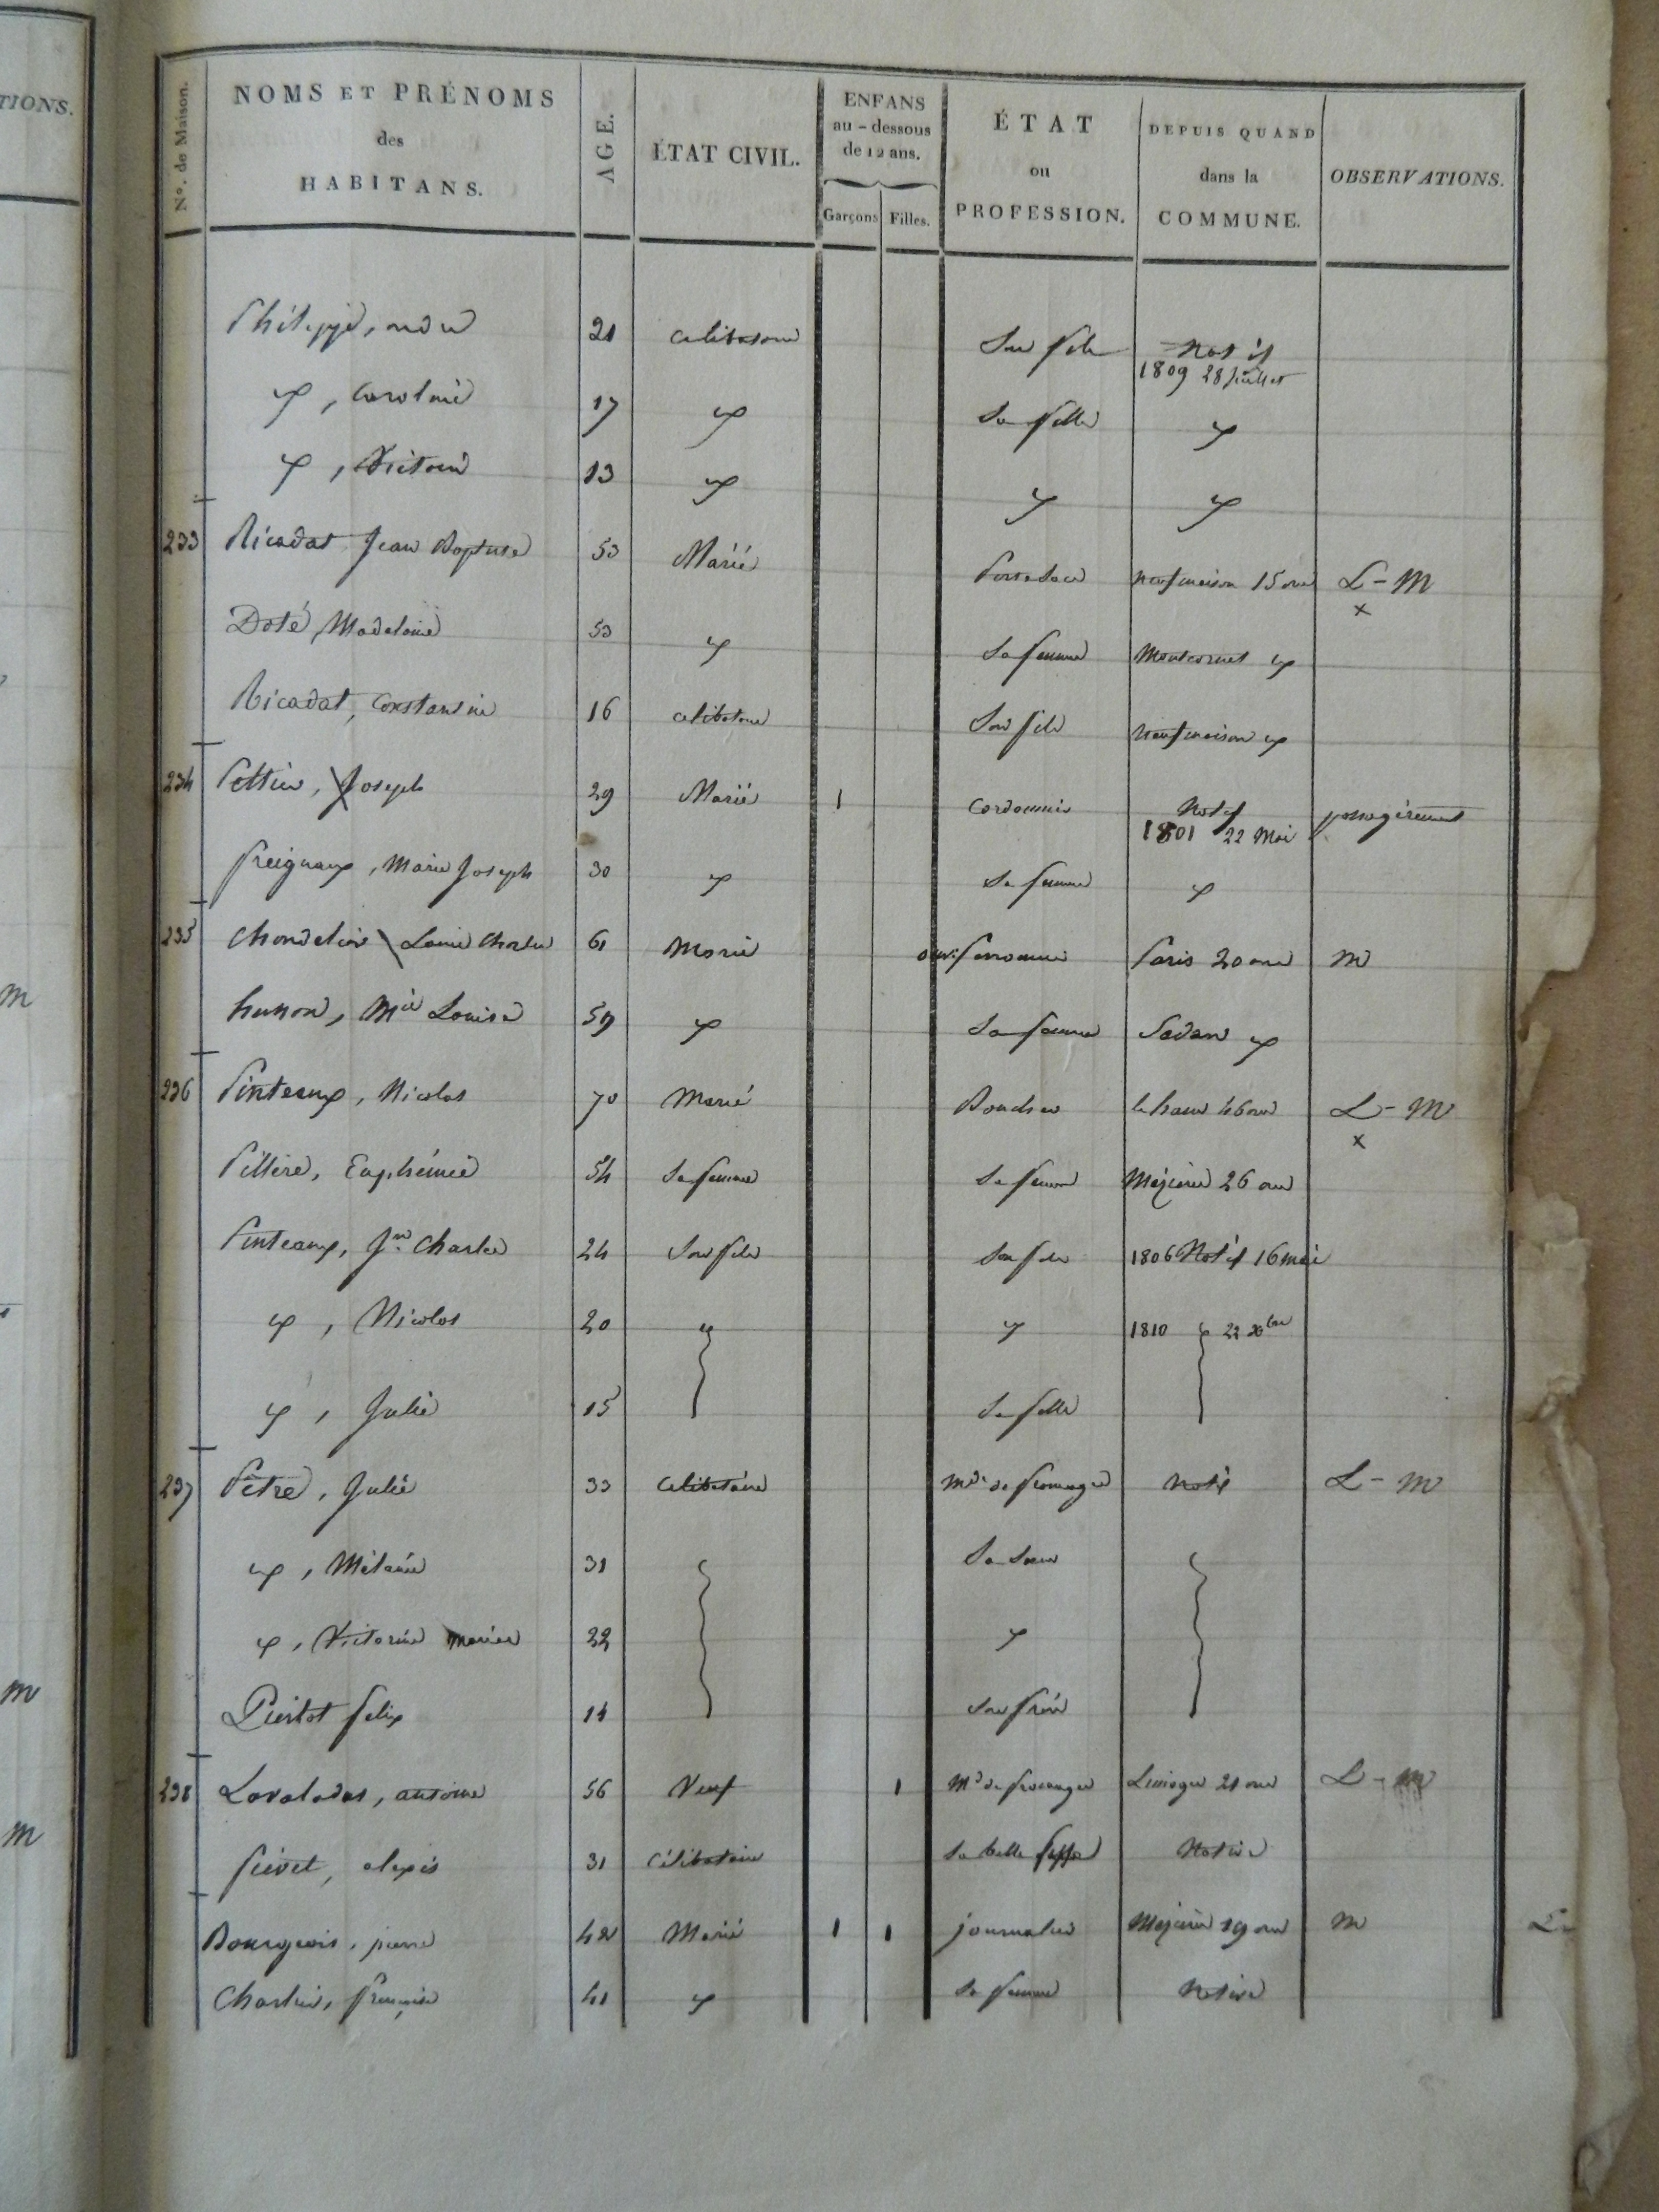 TIONS.
N°. de Maison.
NOMS ET PRÉNOMS
des
HABITANS.
AGE.
ÉTAT CIVIL.
ENFANS
au-dessous
de 12 ans.
Garçons
Filles.
ÉTAT
ou
PROFESSION.
DEPUIS QUAND
dans la
COMMUNE.
OBSERVATIONS.
Philippe, 21 celibataire Son fils Natif
1809 28 Juillet
, Caroline 17 Sa fille
, Victoire 13
233 Ricadat Jean Baptiste 53 Marié Portefaix neufmaison 15 ans L - M
x
Doté, Madelaine 53 Sa femme Montcornet
Ricadat, Constant 16 celibataire Son fils neufmaison
234 Pottier, Joseph 29 Marié 1 Cordonnier Natif passagèrement
1801 22 Mai
Marie Joseph 30 Sa femme
235 Chondelier Louis Charles 61 Marié Paris 20 ans M
husson, Mie Louise 59 Sa femme Sedan
236 Pinteaux, Nicolas 70 Marié Boucher 46 ans L - M
x
Pillière, Euphémie 54 Sa femme Sa femme Mézières 26 ans
Pinteaux, Jn. Charles 24 Son fils Son fils 1806 Natif 16 mai
, Nicolas 20 1810 22 Xbre
, Julie 15 Sa fille
237 Pêtre, Julie 33 Celibataire Mde. de fromages native L - M
, Mélanie 31 Sa Soeur
, Victorine 22
Pierlot felix 14 Son frère
238 Lavaladas, antoine 56 Veuf 1 Md. de fromages Limoges 21 ans L - M
alexis 31 Célibataire Sa belle Native
Bourgeois, pierre 42 Marié 1 1 journalier Mézières 19 ans M
Charlier, françoise 41 Sa femme Native